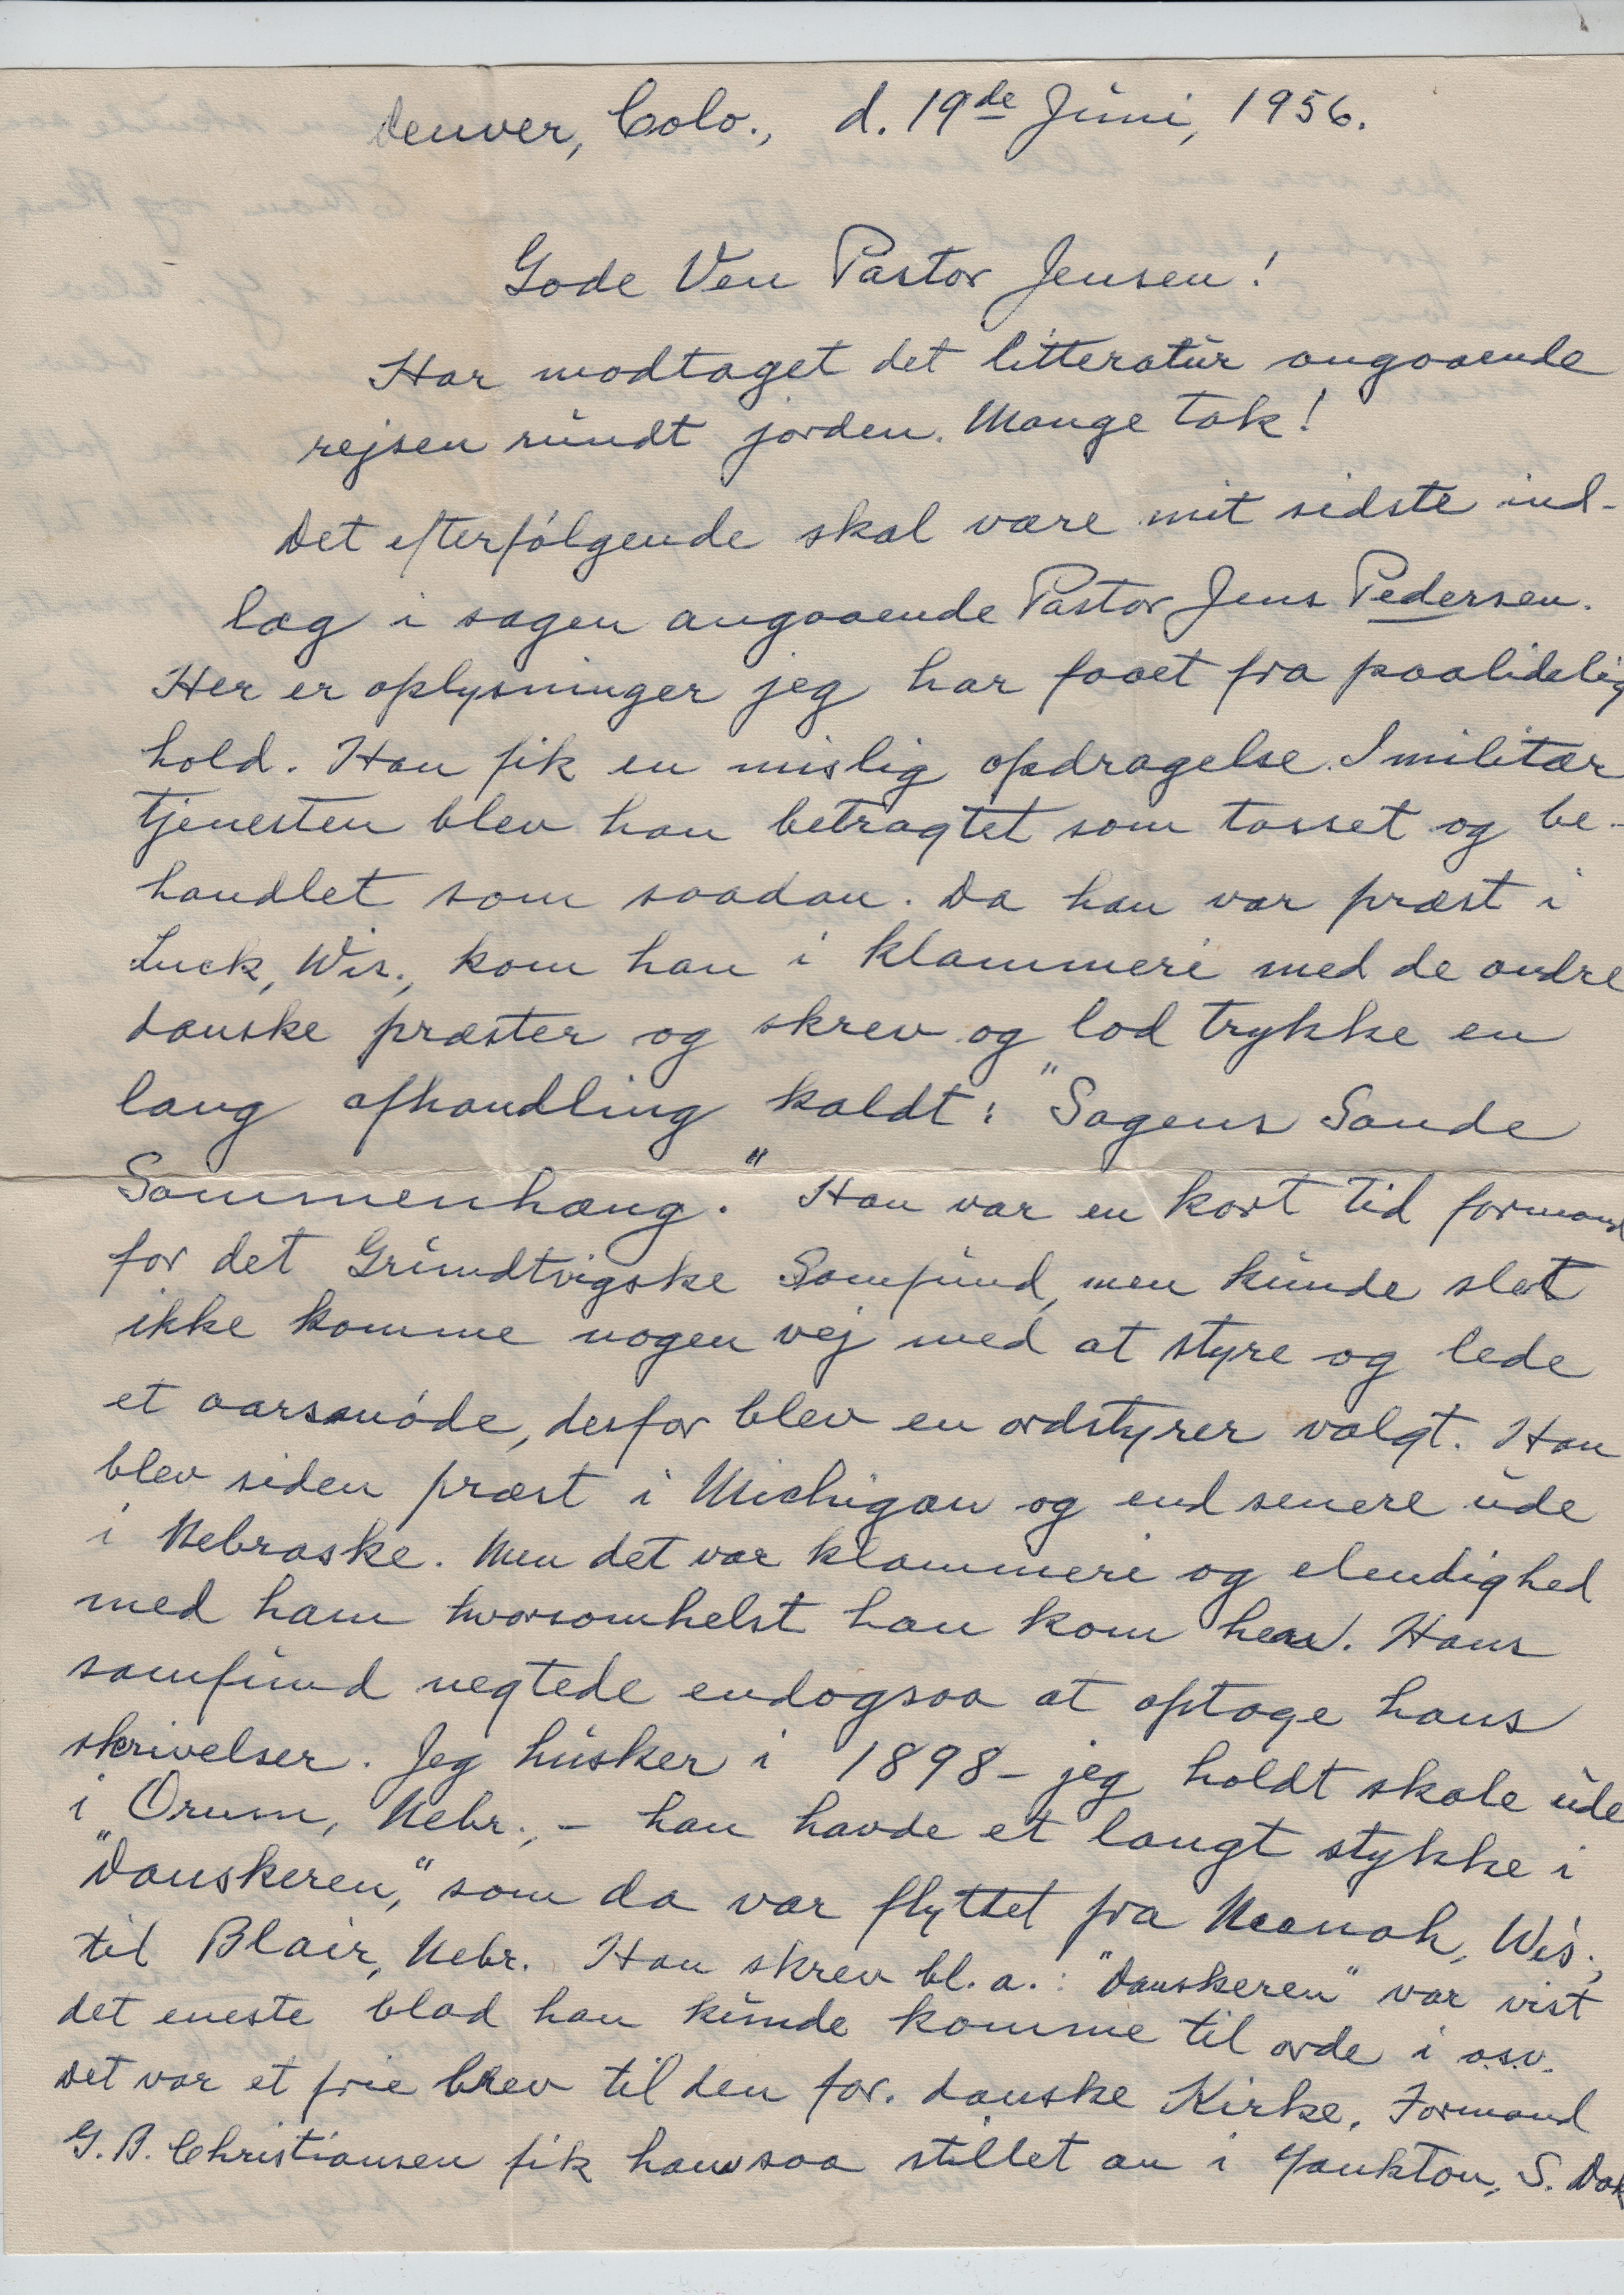 Denver, Colo., d. 19de Juni, 1956.
Gode Ven Pastor Jensen!
Har modtaget det litteratur angaaende
rejsen rundt jorden. Mange tak!
Det efterfølgende skal være mit sidste ind-
læg i sagen angaaende Pastor Jens Pedersen.
Her er oplysninger jeg har faaet fra paalidelig
hold. Han fik en mislig opdragelse. I militær
tjenesten blev han betragtet som tosset og be-
handlet som saadan. Da han var præst i
Luck, Wis., kom han i klammeri med de andre
danske præster og skrev og lod trykke en
lang afhandling kaldt: "Sagens Sande
Sammenhæng." Han var en kort tid formand
for det Grundtvigske Samfund, men kunde slet
ikke komme nogen vej med at styre og lede
et aarsmøde, derfor blev en ordstyrer valgt. Han
blev siden præst i Michigan og end senere ude
i Nebraske. Men det var klammeri og elendighed
med ham hvorsomhelst han kom hen. Hans
samfund negtede endogsaa at optage hans
skrivelser. Jeg husker i 1898 - jeg holdt skole ude
i Orum, Nebr., - han havde et langt stykke i
"Danskeren," som da var flyttet fra Neenah, Wis.,
til Blair, Nebr. Han skrev bl. a.: "Danskeren" var vist
det eneste blad han kunde komme til orde i o.s.v.
Det var et frie brev til den for. danske Kirke. Formand
G. B. Christiansen fik ham saa stillet an i Yankton, S. Dak